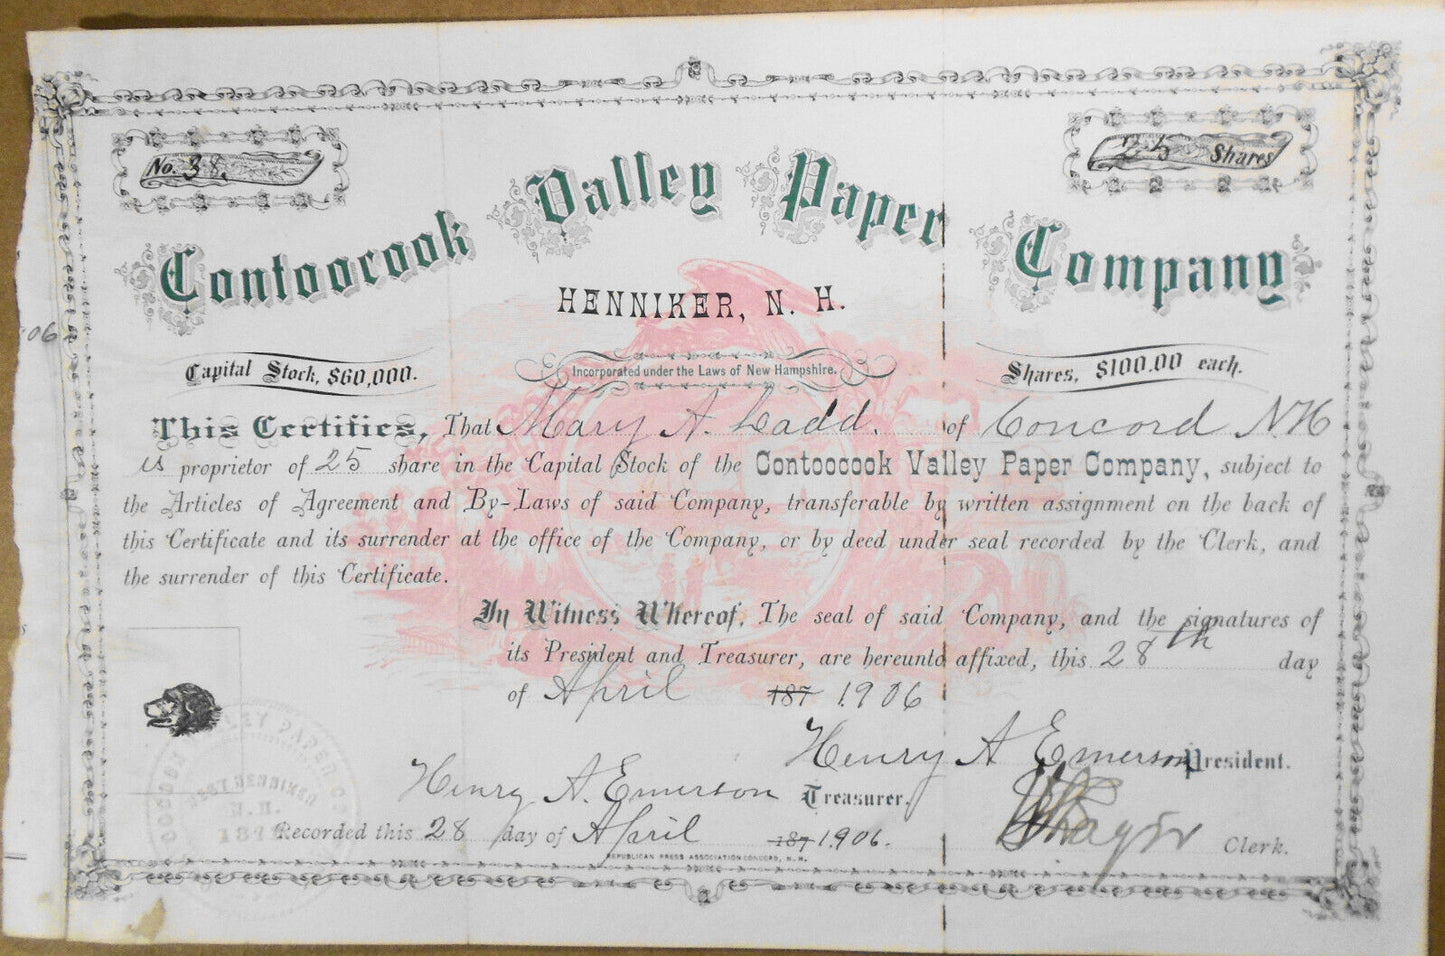 No. 38.
25 Shares
Contoocook Valley Paper Company
HENNIKER, N. H.
Capital Stock, $60,000.
Incorporated under the Laws of New Hampshire.
Shares, $100.00 each.
This Certifies, That Mary A. Ladd. of Concord N.H
is proprietor of 25 share in the Capital Stock of the Contoocook Valley Paper Company, subject to
the Articles of Agreement and By-Laws of said Company, transferable by written assignment on the back of
this Certificate and its surrender at the office of the Company, or by deed under seal recorded by the Clerk, and
the surrender of this Certificate.
In Witness Whereof, The seal of said Company, and the signatures of
its President and Treasurer, are hereunto affixed, this 28th day
of April 187 1906
Henry A Emerson President.
Henry A. Emerson Treasurer.
Recorded this 28 day of April 187 1906.
Clerk.
REPUBLICAN PRESS ASSOCIATION CONCORD, N. H.
VALLEY PAPER CO
WEST HENNIKER
N. H.
06